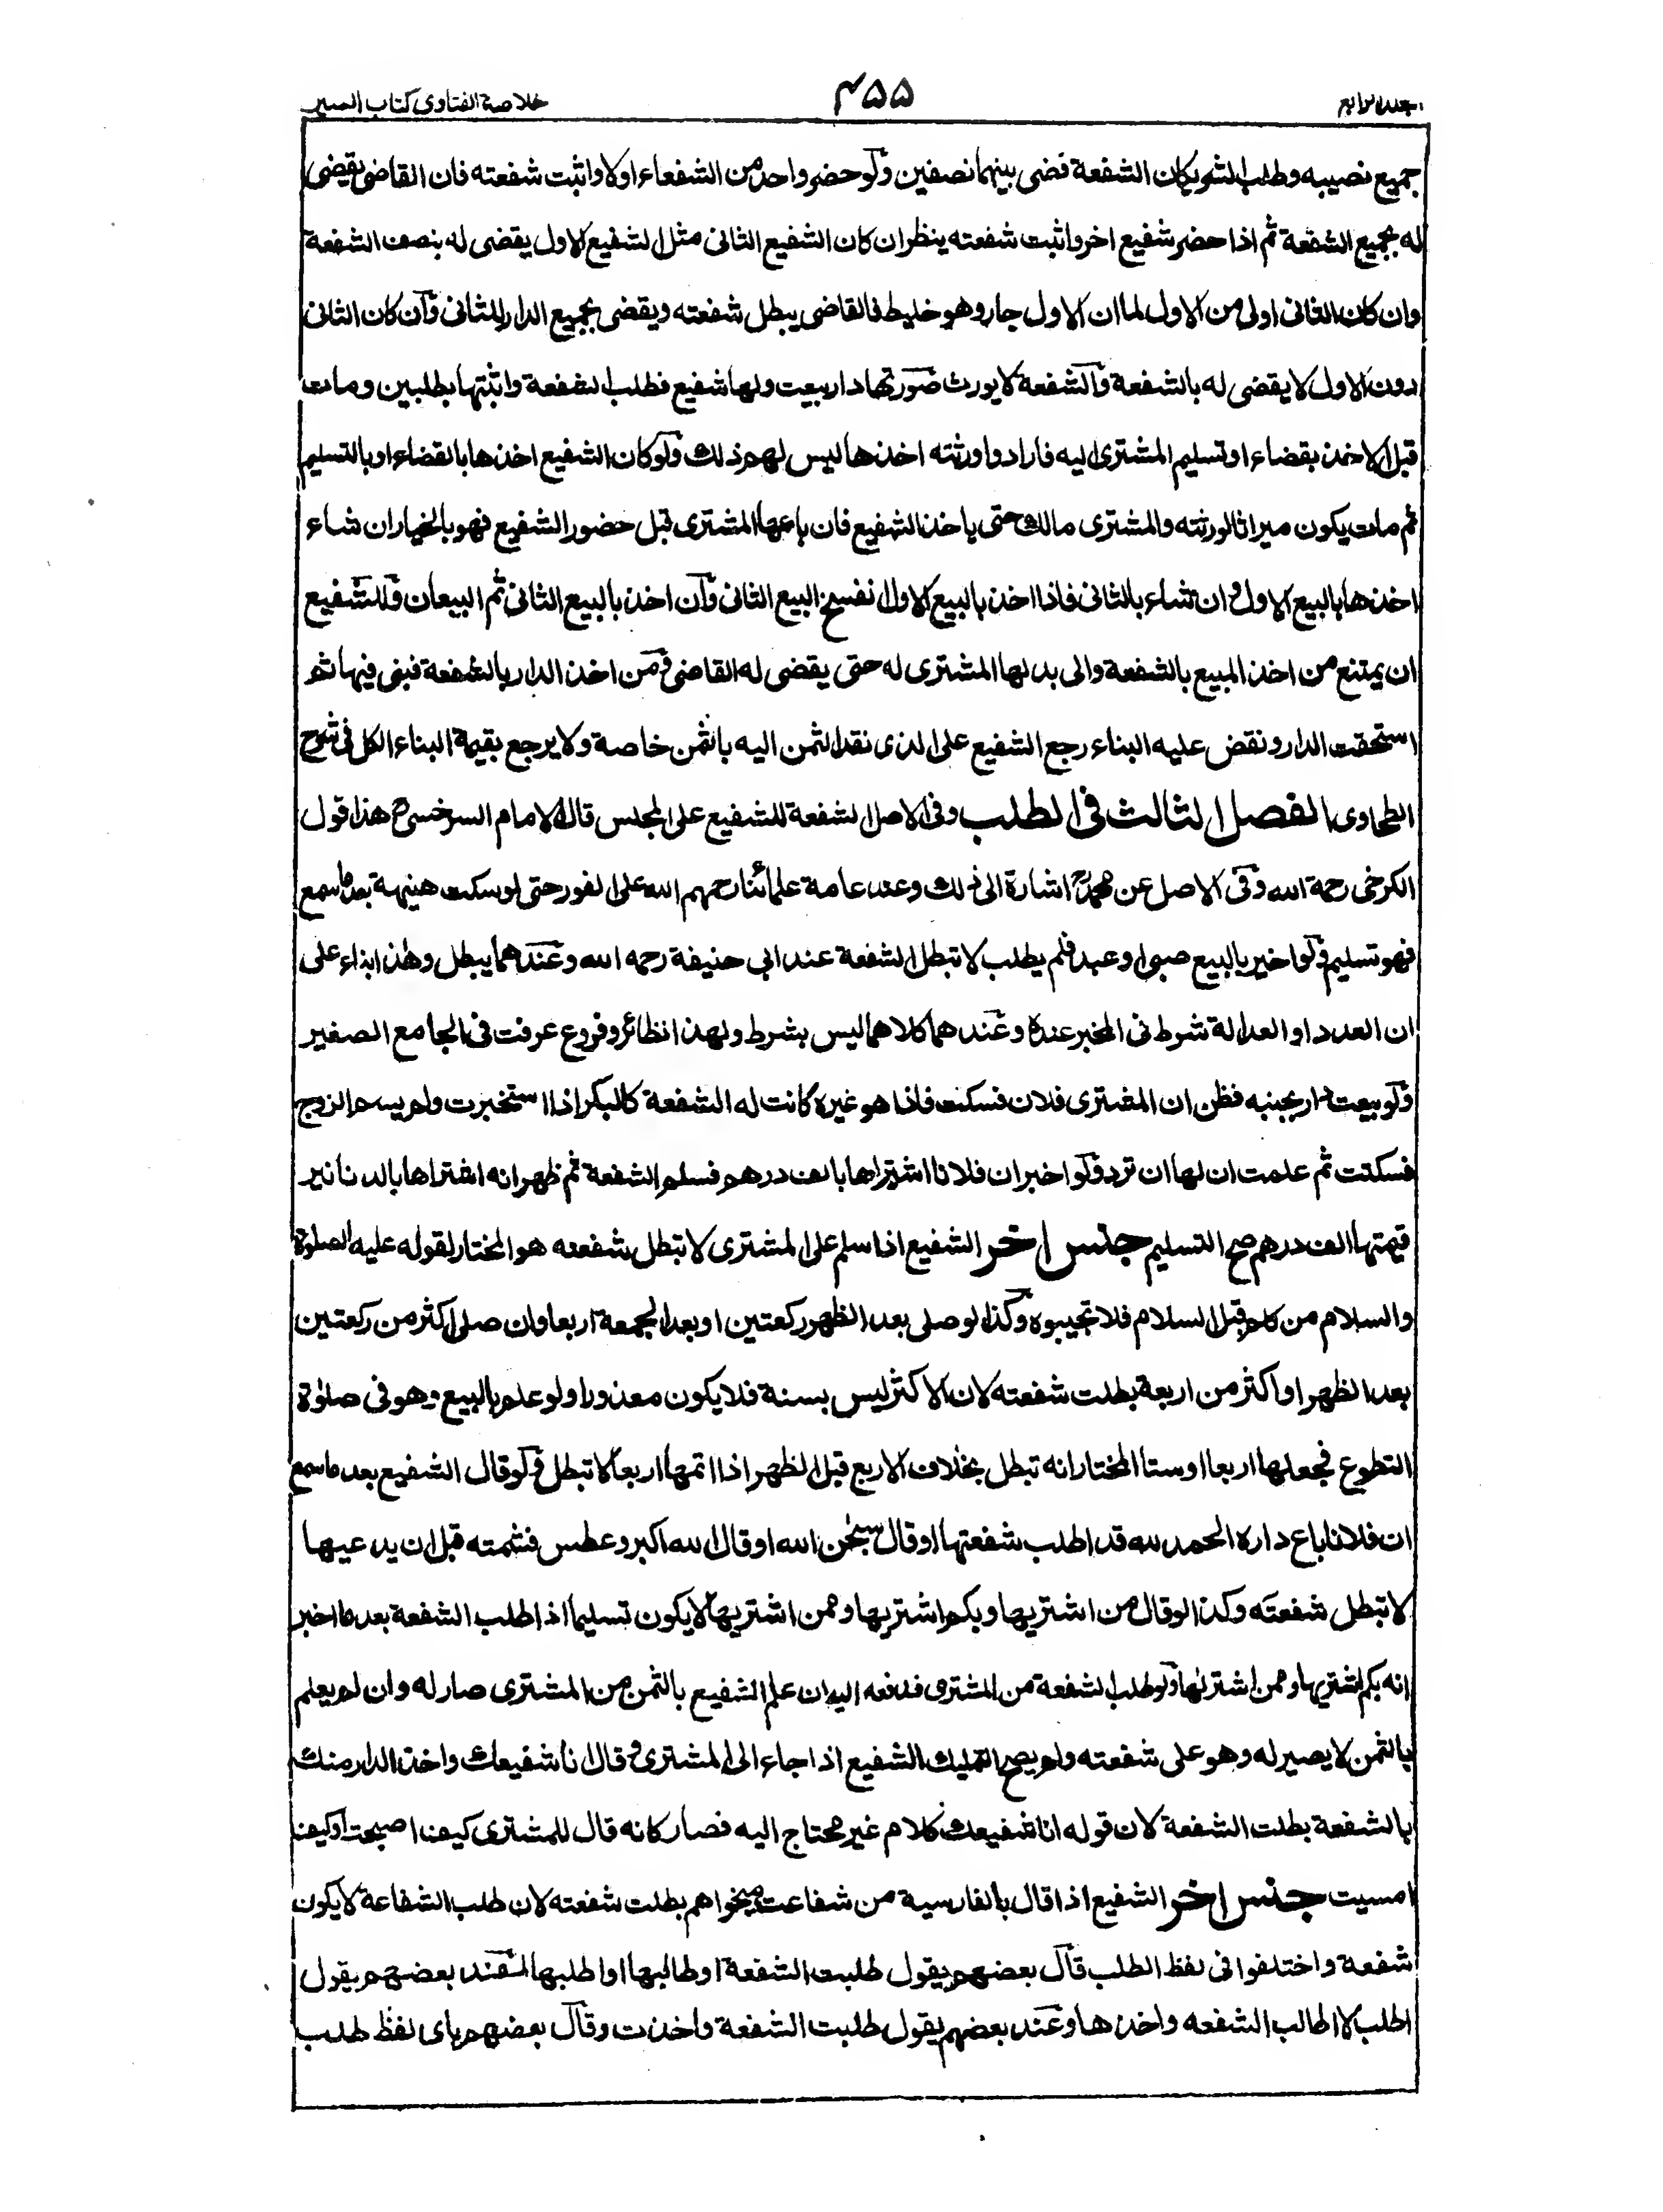 جلد رابع
٤٥٥
خلاصة الفتاوى كتاب السير
جميع نصيبه وطلب الشريكان الشفعة قضى بينهما نصفين ولو حضر واحد من الشفعاء اولا واثبت شفعته فان القاضى يقضى
له بجميع الشفعة ثم اذا حضر شفيع اخر واثبت شفعته ينظر ان كان الشفيع الثانى مثل الشفيع الاول يقضى له بنصف الشفعة
وان كان الثانى اولى من الاول لما ان الاول جار وهو خليط فالقاضى يبطل شفعته ويقضى بجميع الدار للثانى وان كان الثانى
دون الاول لا يقضى له بالشفعة والشفعة لا يورث صورتها دار بيعت ولها شفيع فطلب الشفعة واثبتها بطلبين ومات
قبل الاخذ بقضاء او تسليم المشترى اليه فارادوا ورثته اخذها ليس لهم ذلك ولو كان الشفيع اخذها بالقضاء او بالتسليم
ثم مات يكون ميراثا لورثته والمشترى مالك حتى ياخذ الشفيع فان باعها المشترى قبل حضور الشفيع فهو بالخيار ان شاء
اخذها بالبيع الاول وان شاء بالثانى فاذا اخذ بالبيع الاول انفسخ البيع الثانى وان اخذ بالبيع الثانى ثم البيعان وللشفيع
ان يمتنع من اخذ المبيع بالشفعة والى بدلها المشترى له حتى يقضى له القاضى ومن اخذ الدار بالشفعة فبنى فيها ثم
استحقت الدار ونقض عليه البناء رجع الشفيع على الذى نقد الثمن اليه بالثمن خاصة ولا يرجع بقيمة البناء الكل فى شرح
الطحاوى الفصل الثالث فى الطلب وفى الاصل الشفعة للشفيع على المجلس قال الامام السرخسى هذا قول
الكرخى رحمة الله وفى الاصل عن محمد اشارة الى ذلك وعند عامة علمائنا رحمهم الله على الفور حتى لو سكت هنيهة بعد ما سمع
فهو تسليم ولو اخبر بالبيع صبى او عبد فلم يطلب لا تبطل الشفعة عند ابى حنيفة رحمه الله وعندهما يبطل وهذا بناء على
ان العدد او العدالة شرط فى المخبر عنده وعندهما كلاهما ليس بشرط ولهذا نظائر وفروع عرفت فى الجامع الصغير
ولو بيعت دار بجنبه فظن ان المشترى فلان فسكت فاذا هو غيره كانت له الشفعة كالبكر اذا استخبرت ولم يسم الزوج
فسكتت ثم علمت ان لها ان ترد ولو اخبر ان فلانا اشتراها بالف درهم فسلم الشفعة ثم ظهر انه اشتراها بالدنانير
قيمتها الف درهم صح التسليم جنس اخر الشفيع اذا سلم على المشترى لا تبطل شفعته هو المختار لقوله عليه الصلوة
والسلام من كلم قبل السلام فلا تجيبوه وكذا لو صلى بعد الظهر ركعتين او بعد الجمعة اربعا وان صلى اكثر من ركعتين
بعد الظهر او اكثر من اربعة بطلت شفعته لان الاكثر ليس بسنة فلا يكون معذورا ولو علم بالبيع وهو فى صلوة
التطوع فجعلها اربعا او ستا المختار انه تبطل بخلاف الاربع قبل الظهر اذا اتمها اربعا لا تبطل ولو قال الشفيع بعد ما سمع
ان فلانا باع داره الحمد لله قد اطلب شفعتها او قال سبحن الله او قال الله اكبر وعطس فشمته قبل ان يدعيها
لا تبطل شفعته وكذا لو قال من اشتريها وبكم اشتريها وممن اشتريها لا يكون تسليما اذا طلب الشفعة بعد ما اخبر
انه بكم اشتريها وممن اشتريها ولو طلب الشفعة من المشترى فدفعه اليه ان علم الشفيع بالثمن من المشترى صار له وان لم يعلم
بالثمن لا يصير له وهو على شفعته ولم يصح التمليك الشفيع اذا جاء الى المشترى وقال انا شفيعك واخذ الدار منك
بالشفعة بطلت الشفعة لان قوله انا شفيعك كلام غير محتاج اليه فصار كانه قال للمشترى كيف اصبحت او كيف
امسيت جنس اخر الشفيع اذا قال بالفارسية من شفاعت ميخواهم بطلت شفعته لان طلب الشفاعة لا يكون
شفعة واختلفوا فى لفظ الطلب قال بعضهم يقول طلبت الشفعة او طالبها او اطلبها بعضهم يقول
اطلب لا اطالب الشفعه واخذها وعند بعضهم يقول طلبت الشفعة واخذت وقال بعضهم باى لفظ طلب